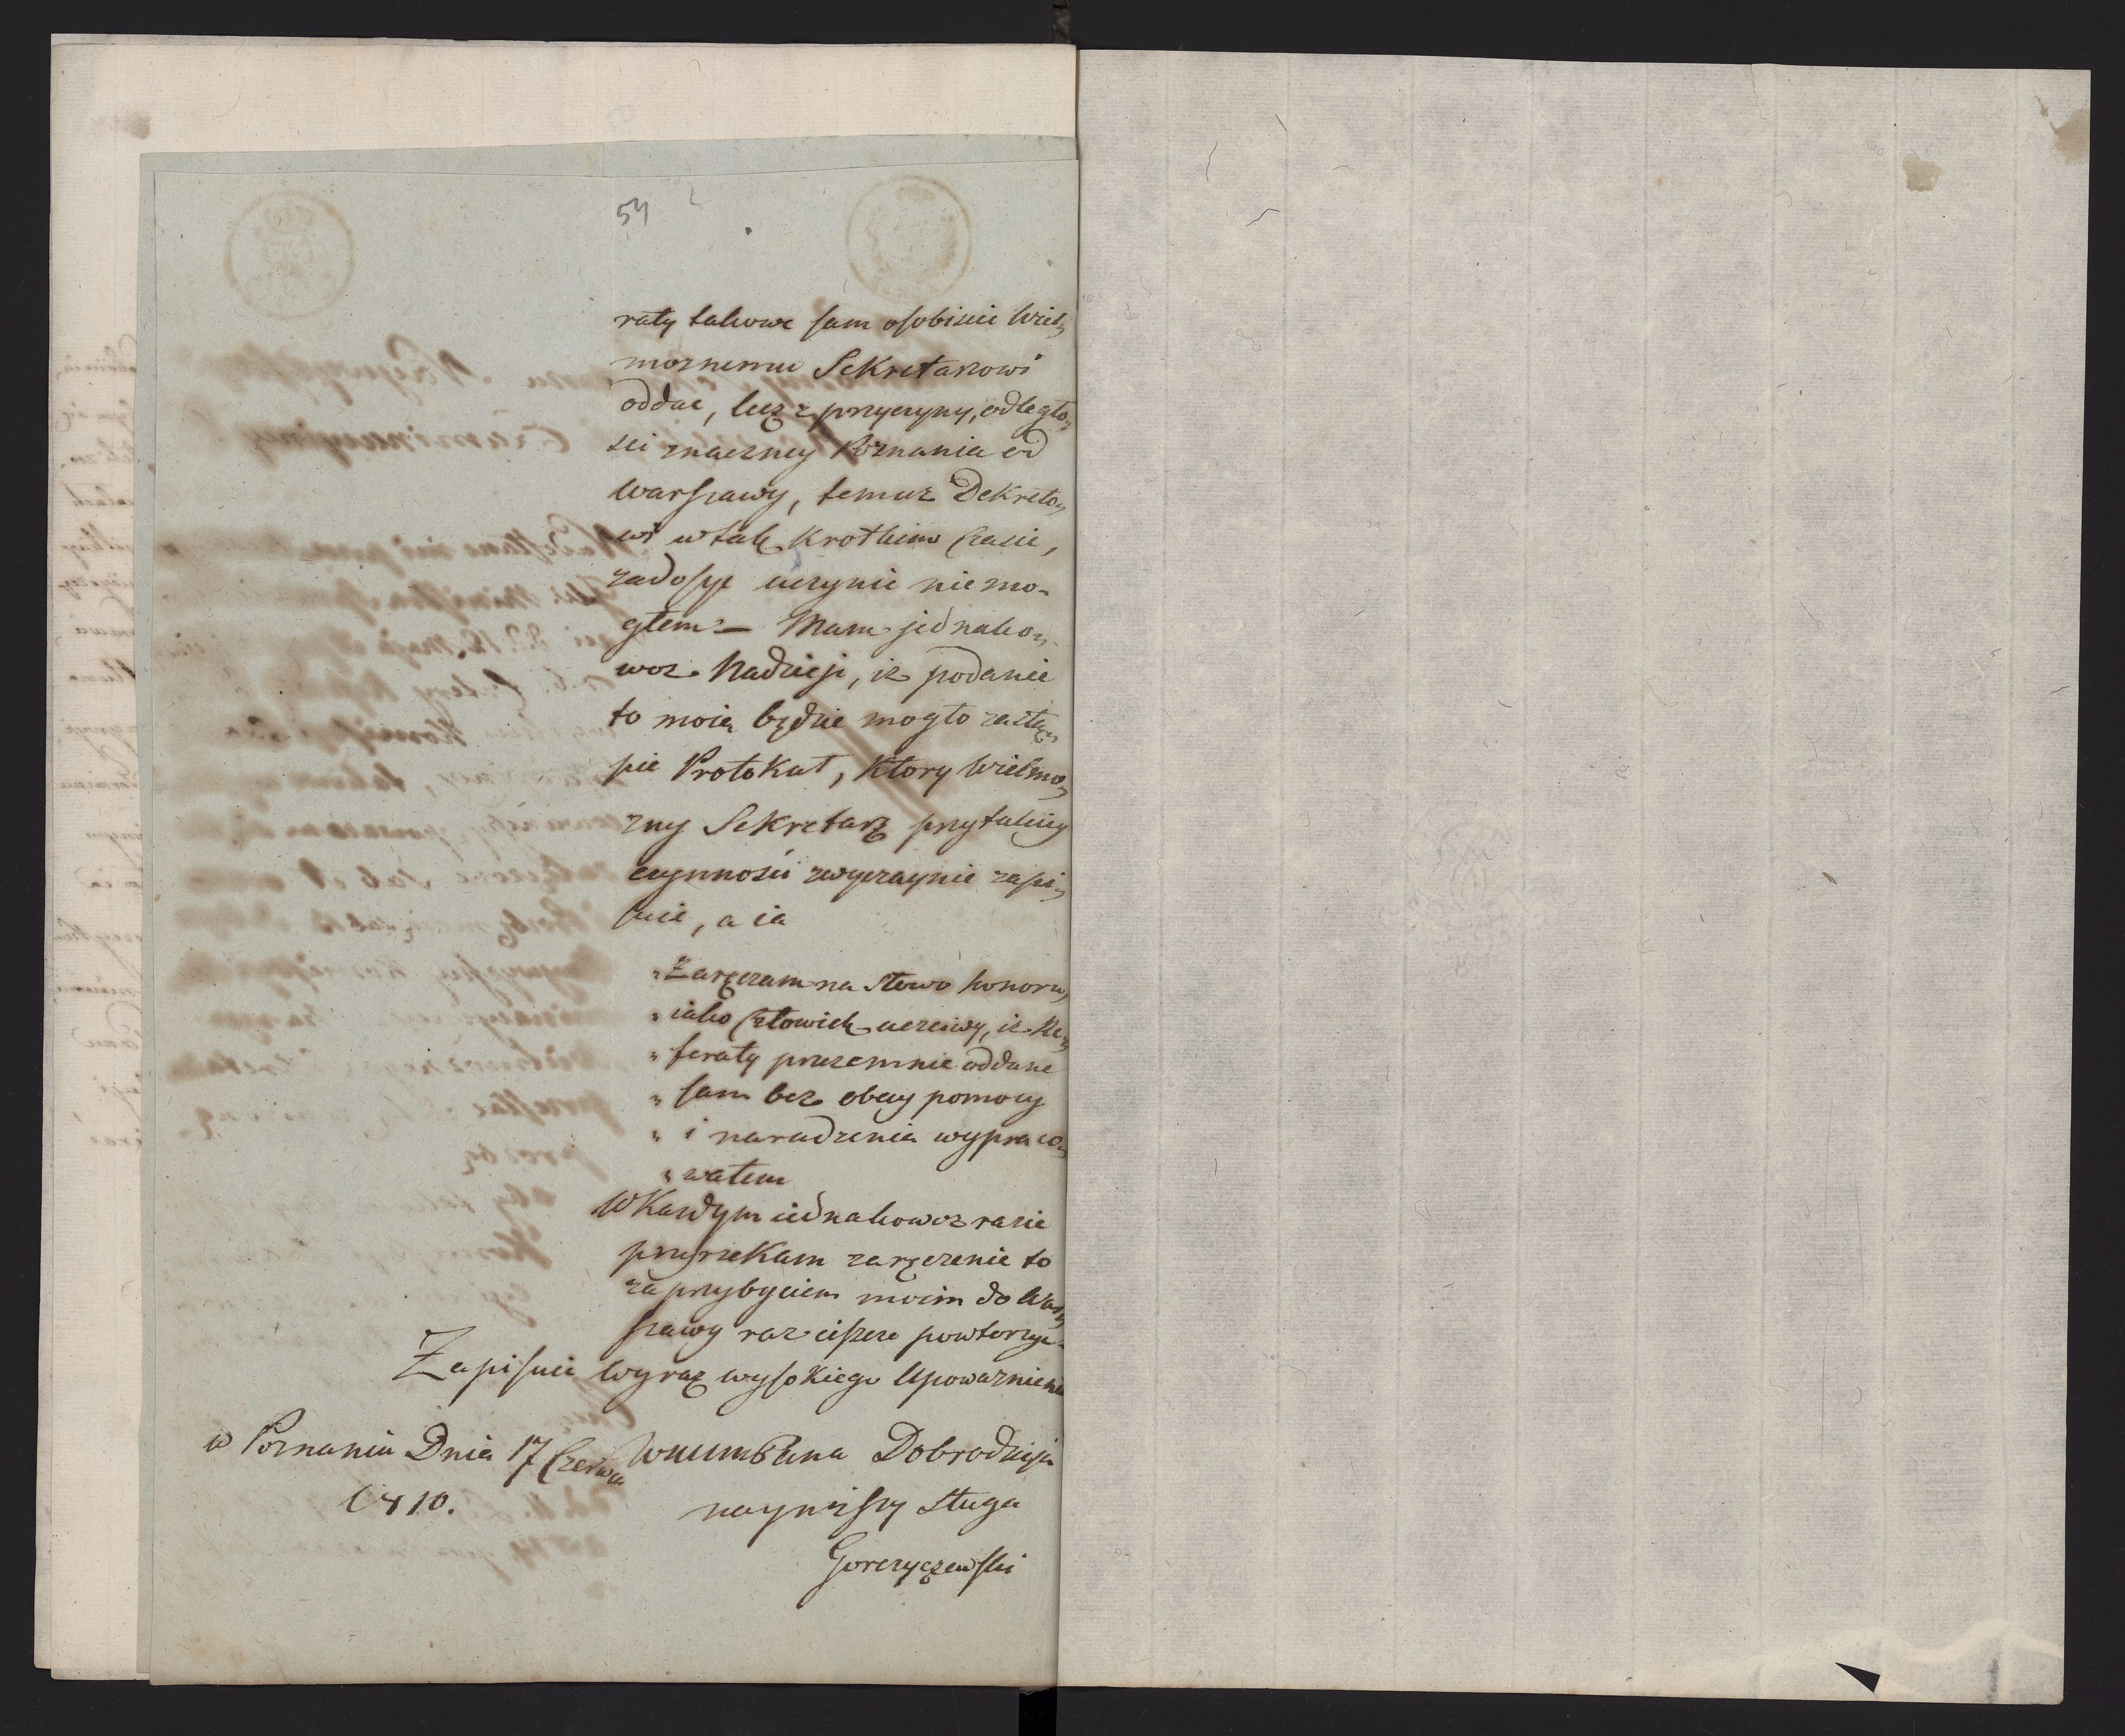 54
raty takowe sam osobiscie Wiel„
moznemu Sekretarzowi
oddac, lecz z przyczyny, odległo„
sci znaczney Poznania od
Warszawy, temuz Dekreto„
wi w tak krotkim Czasie,
zadosyc uczynic nie mo-
głem. — Mam jednako„
woz Nadzieji, iz podanie
to moie będzie mogło zastą„
pic Protokuł, ktory Wielmo„
zny Sekretarz przy takiey
czynnosci zwyczaynie zapi„
suie, a ia
„ Zaręczam na Słowo honoru,
„ iako Człowiek uczciwy, iz Re„
„ feraty przezemnie oddane
„ sam bez obcey pomocy
„ i naradzenia wypraco„
„ wałem
W Kazdym iednakowoz razie
przyrzekam zaręczenie to
za przybyciem moim do War„
szawy raz ieszcze powtorzyc.
Zapisuie Wyraz wysokiego Upowaznienia
w Poznaniu Dnia 17 Czerwca
1810.
Pana Dobrodzieja
naynizszy Sługa
Gorczyczewski